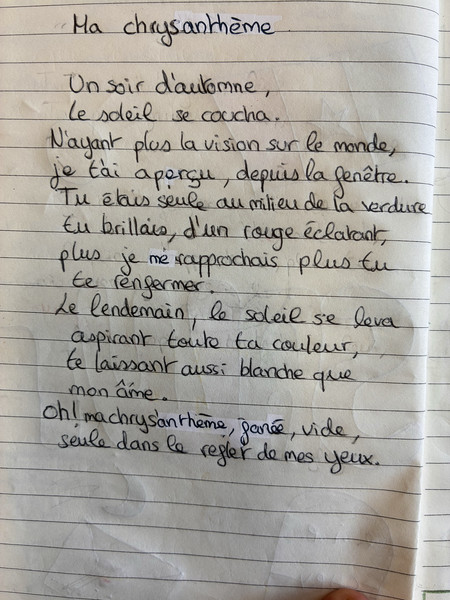 Ma chrysanthème
Un soir d'automne,
le soleil se coucha.
N'ayant plus la vision sur le monde,
je t'ai aperçu, depuis la fenêtre.
Tu étais seule au milieu de la verdure
tu brillais, d'un rouge éclatant,
plus je me rapprochais plus tu
te renfermer.
Le lendemain, le soleil se leva
aspirant toute ta couleur,
te laissant aussi blanche que
mon âme.
Oh! ma chrysanthème, fanée, vide,
seule dans le regler de mes yeux.